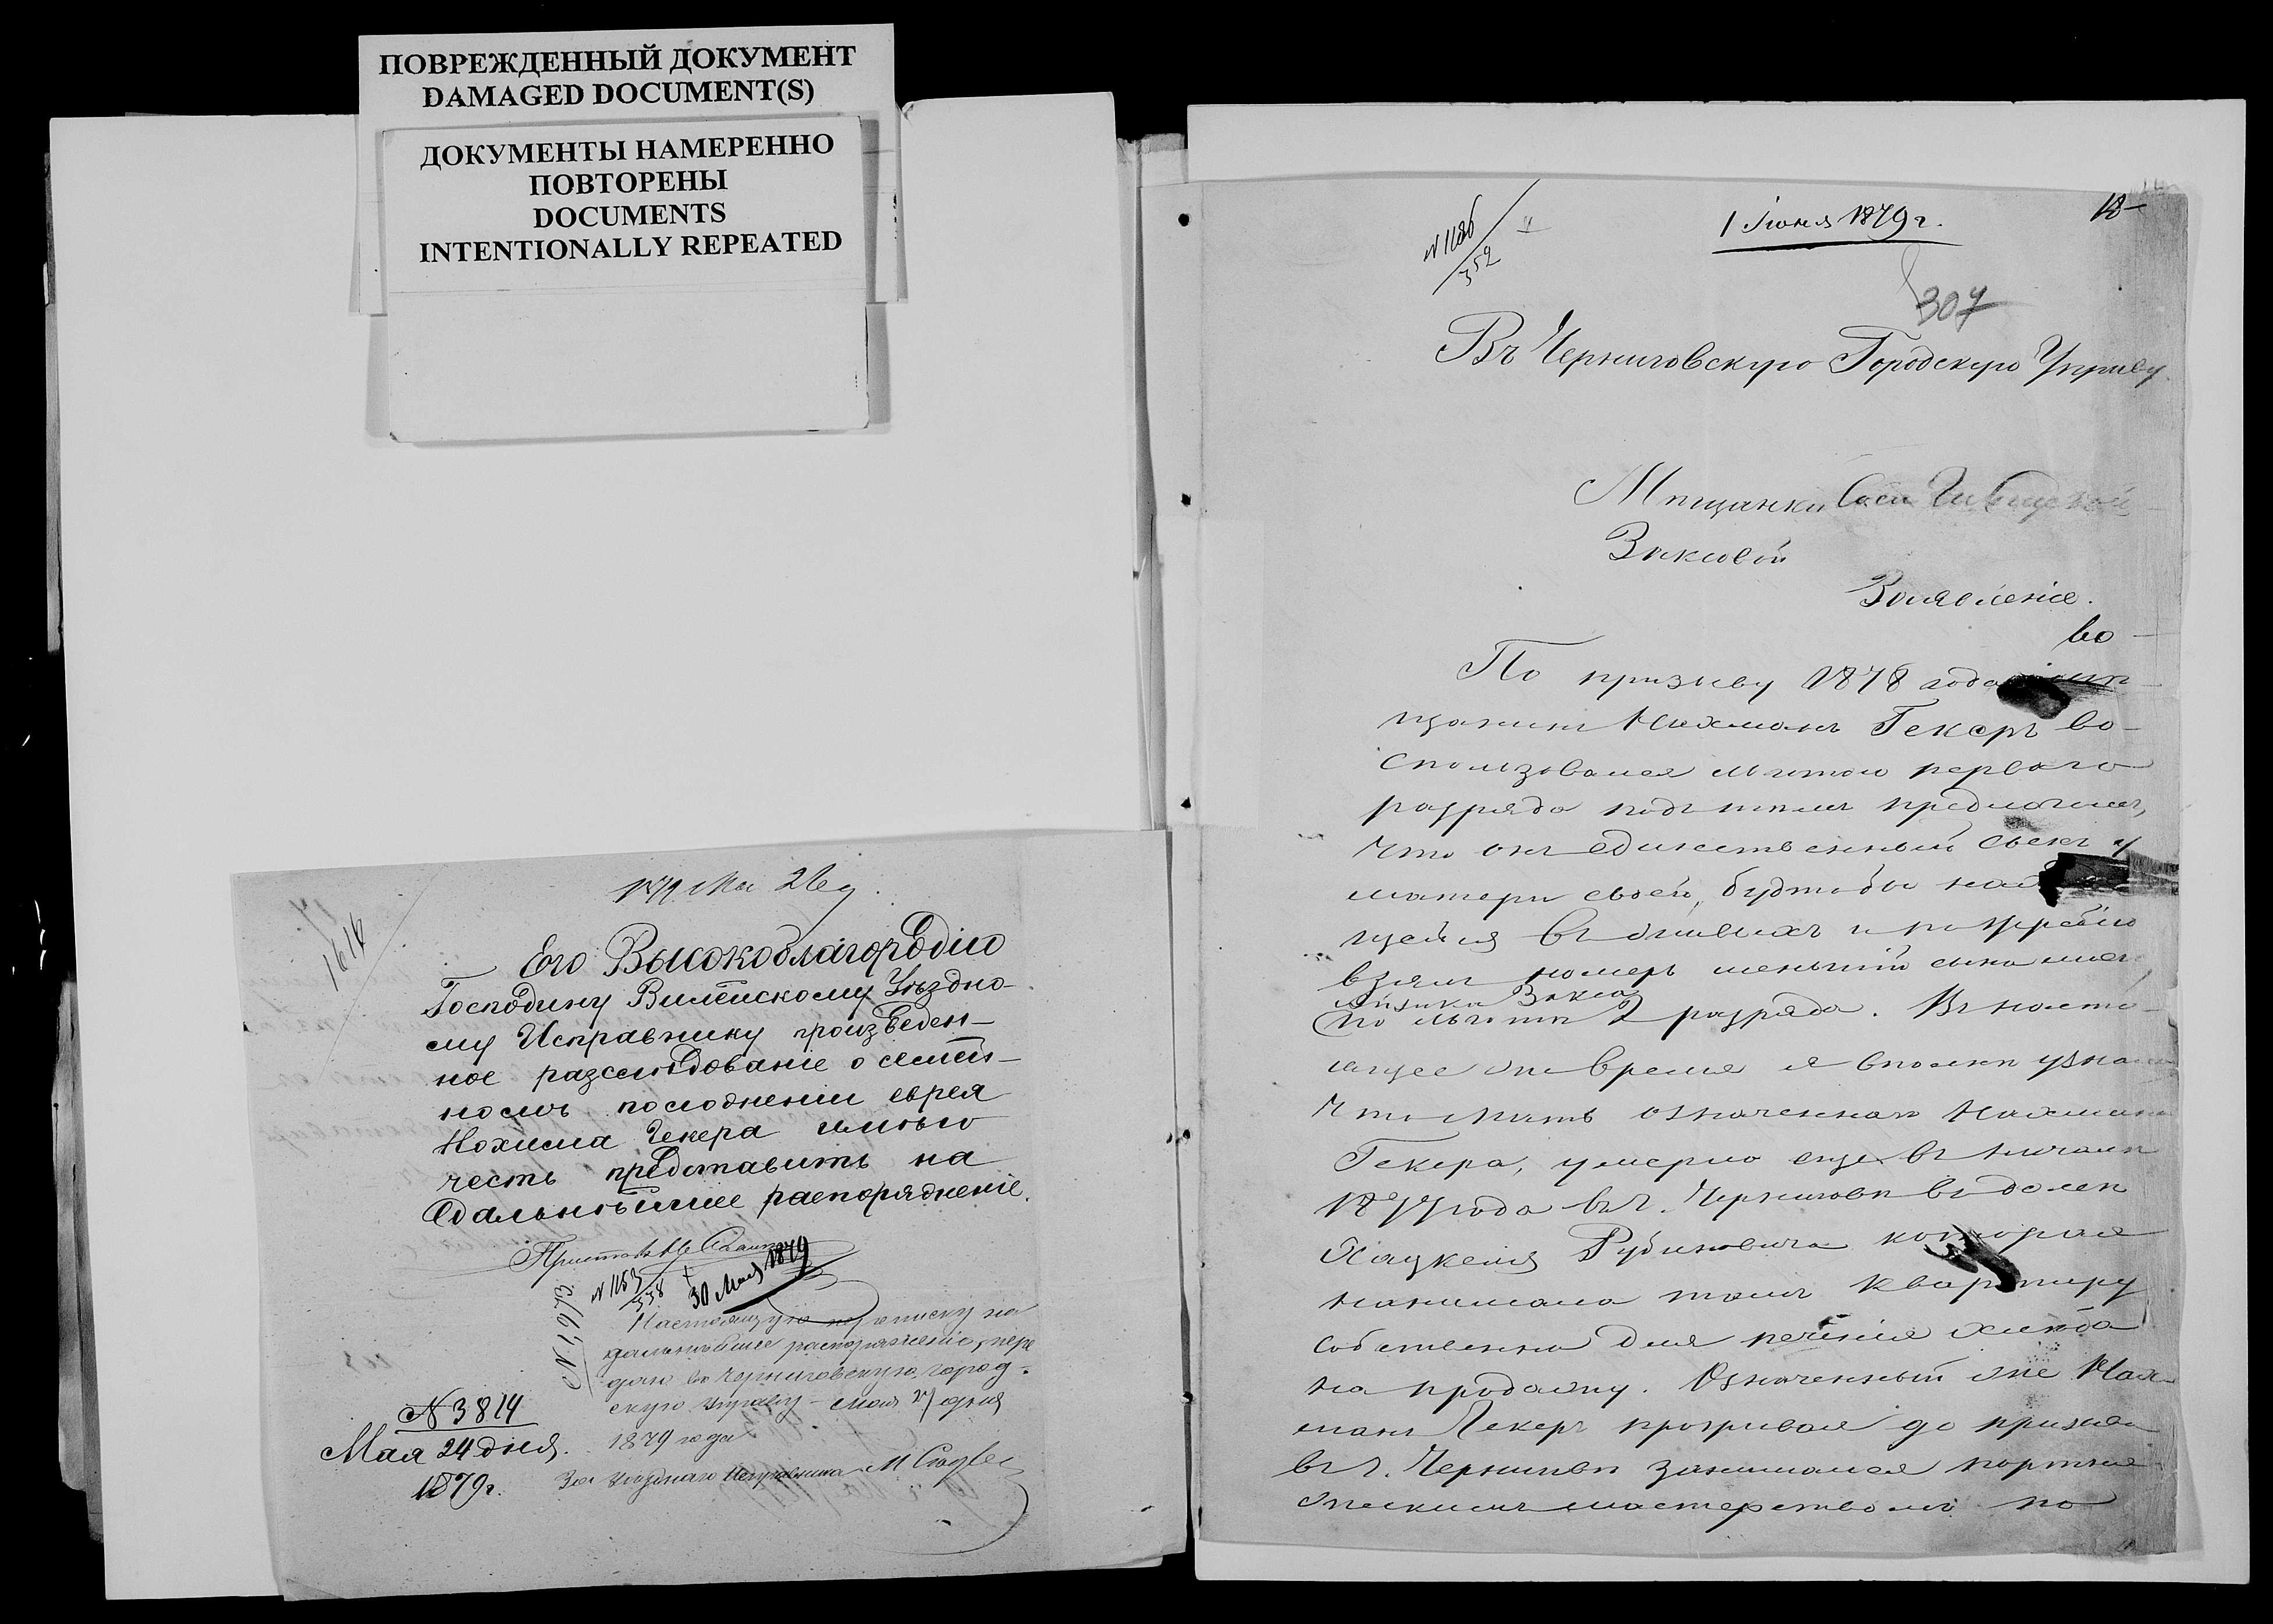 ПОВРЕЖДЕННЫЙ ДОКУМЕНТ
DAMAGED DOCUMENT(S)
ДОКУМЕНТЫ НАМЕРЕННО
ПОВТОРЕНЫ
DOCUMENTS
INTENTIONALLY REPEATED
1616
Его Высокоблагородію
Господину Вилейскому Уѣздно-
му Исправнику произведен-
ное разслѣдованіе о семей-
номъ положеніи еврея
Нохима Гекера имѣю
честь представить на
дальнѣйшее распоряженіе.
Приставъ
N 1153
338
30 Мая 1879
Настоящую переписку на
дальнѣйшее распоряженіе, пере
даю въ Черниговскую город-
скую управу – мая 27 дня
1879 года
За уѣзднаго исправника
N 3814
Мая 24 дня.
1879 г.
N 1186
352
1 Іюня 1879 г.
18
307
Въ Черниговскую Городскую Управу
Мѣщанки Соси
Заксовой
Заявленіе.
По призыву 1878 года
щанинъ Нахманъ Гекеръ во-
спользовался льготою перваго
разряда подъ тѣмъ предлогомъ,
что онъ единственный сынъ у
матери своей, будто бы
щейся въ живыхъ и по жребію
взялъ номеръ меньшій сына моего
Закса
по льготѣ 2 разряда. Въ настоя-
щее же время я вполнѣ узнала
что мать означеннаго Нахмана
Гекера, умерла еще въ началѣ
1877 года въ г. Черниговѣ въ домѣ
Хацкеля Рубиновича которая
нанимала тамъ квартиру
собственно для печенія хлѣба
на продажу. Означенный же Нах-
манъ Гекеръ проживая до призыва
въ г. Черниговѣ занимался портня-
жескимъ мастерствомъ по